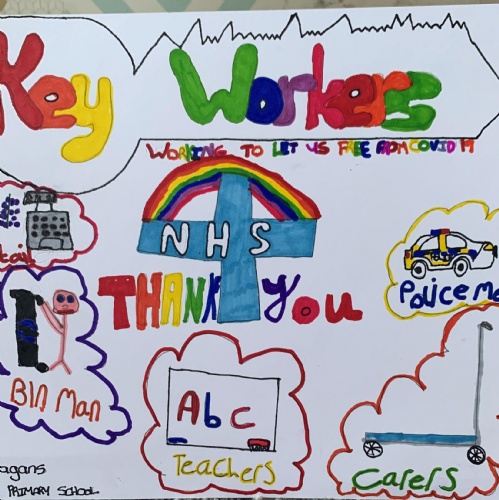 Key Workers
WORKING TO LET US FREE FROM COVID 19
NHS
tail
THANK you
Policeme
BIN MAN
Abc
Teachers
Carers
agans
PRIMARY SCHOOL